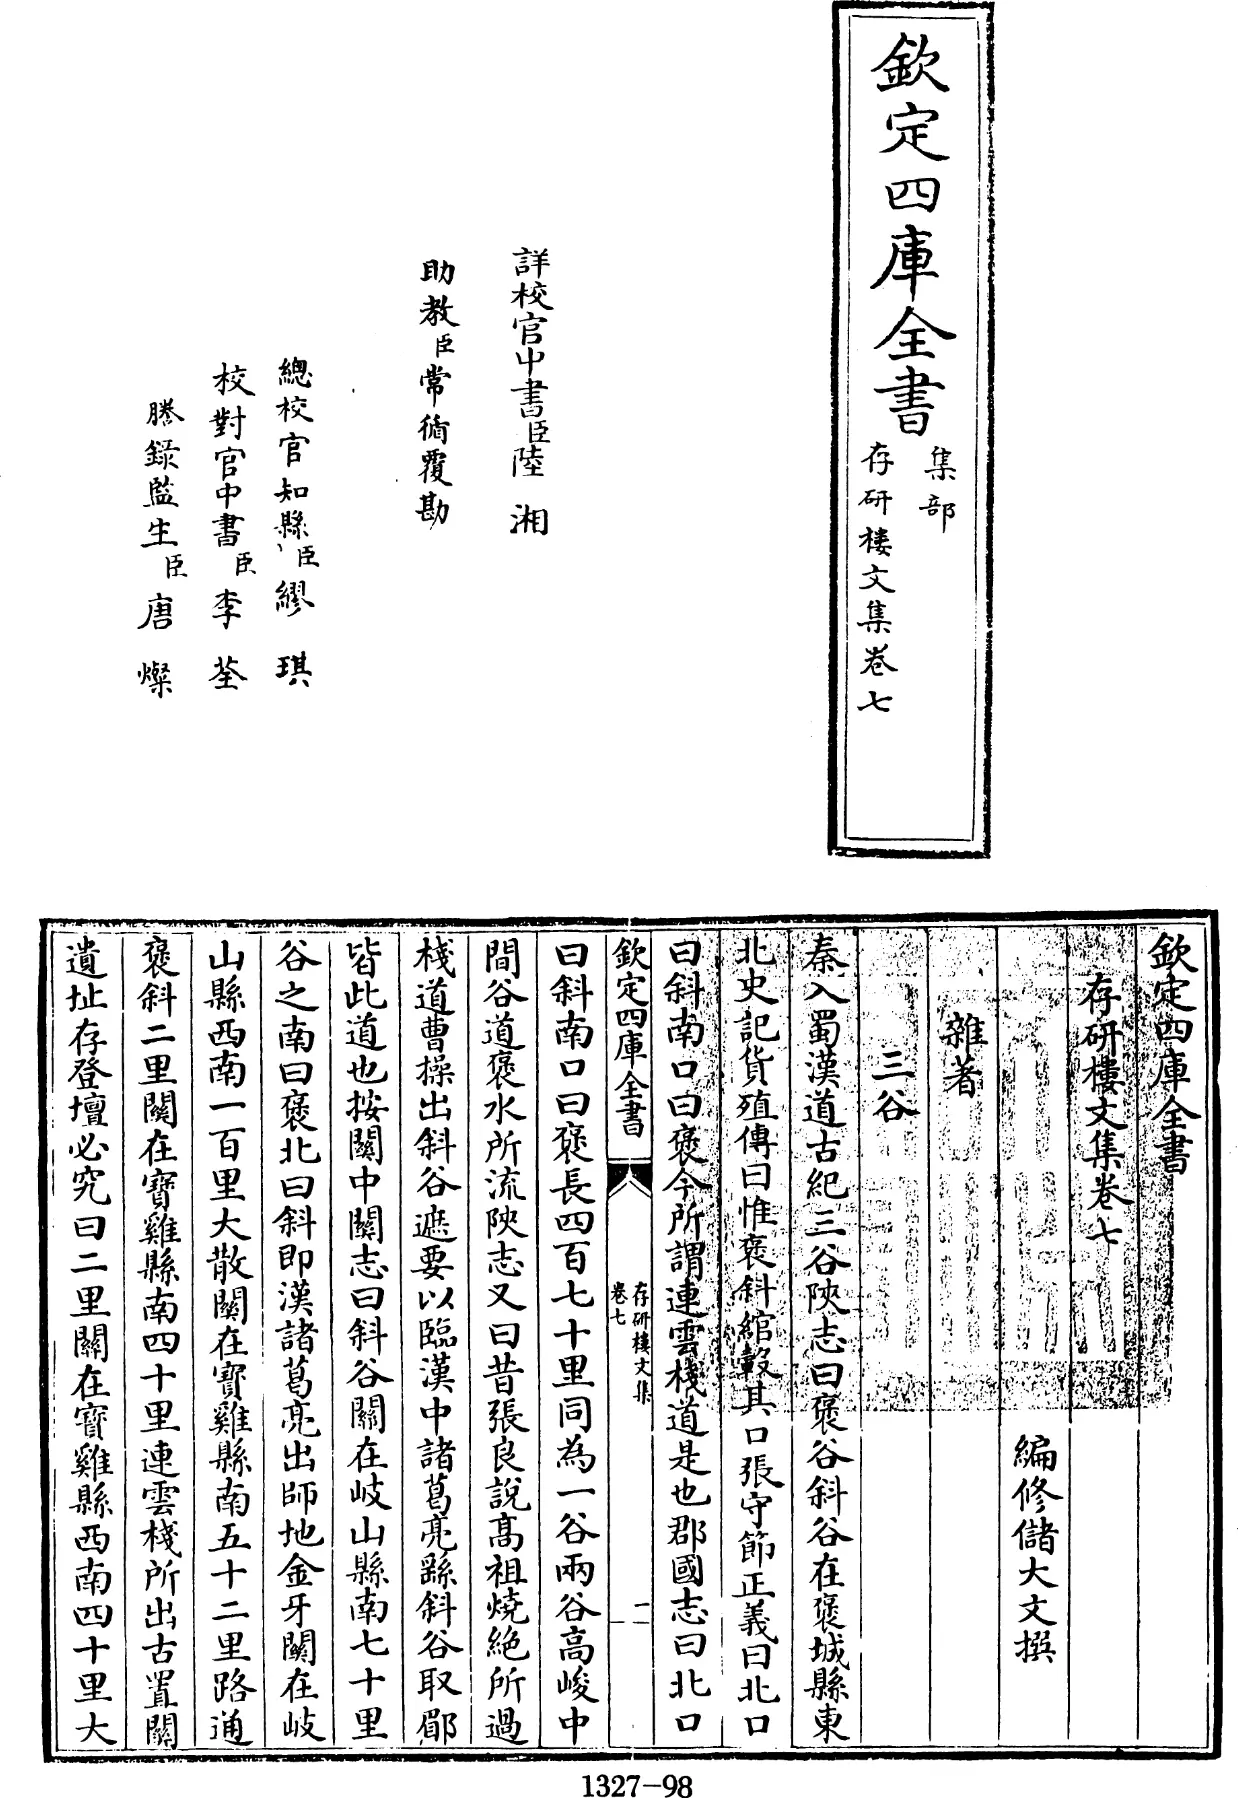 欽定四庫全書
集部
存研樓文集卷七
詳校官中書臣陸湘
助教臣常循覆勘
總校官知縣臣繆琪
校對官中書臣李荃
謄錄監生臣唐燦
欽定四庫全書
存研樓文集卷七
編修儲大文撰
雜著
三谷
秦入蜀漢道古紀三谷陝志曰褒谷斜谷在褒城縣東
北史記貨殖傳曰惟褒斜綰轂其口張守節正義曰北口
曰斜南口曰褒今所謂連雲棧道是也郡國志曰北口
欽定四庫全書
存研樓文集
卷七
二
曰斜南口曰褒長四百七十里同為一谷兩谷高峻中
間谷道褒水所流陝志又曰昔張良說高祖燒絶所過
棧道曹操出斜谷遮要以臨漢中諸葛亮繇斜谷取郿
皆此道也按關中關志曰斜谷關在岐山縣南七十里
谷之南曰褒北曰斜即漢諸葛亮出師地金牙關在岐
山縣西南一百里大散關在寶雞縣南五十二里路通
褒斜二里關在寶雞縣南四十里連雲棧所出古置關
遺址存登壇必究曰二里關在寶雞縣西南四十里大
1327-98